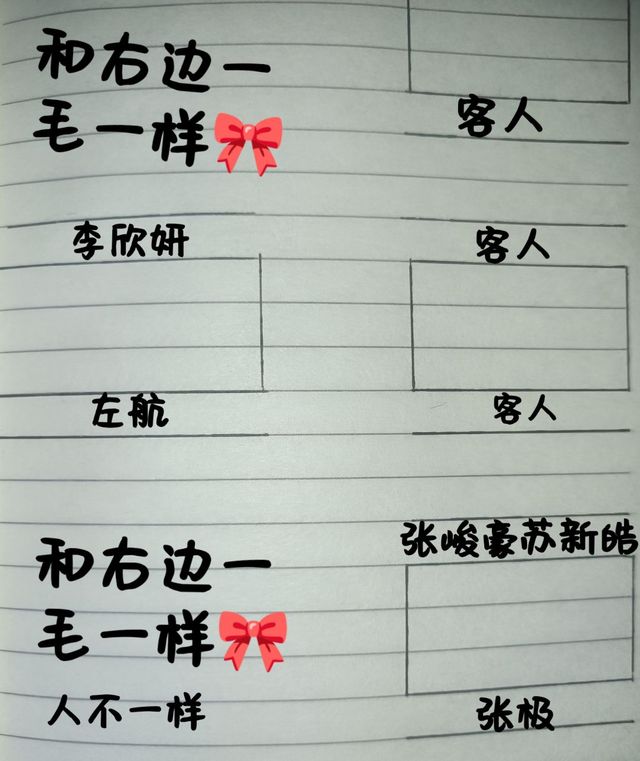 和右边一
毛一样
客人
李欣妍
客人
左航
客人
张峻豪苏新皓
和右边一
毛一样
人不一样
张极